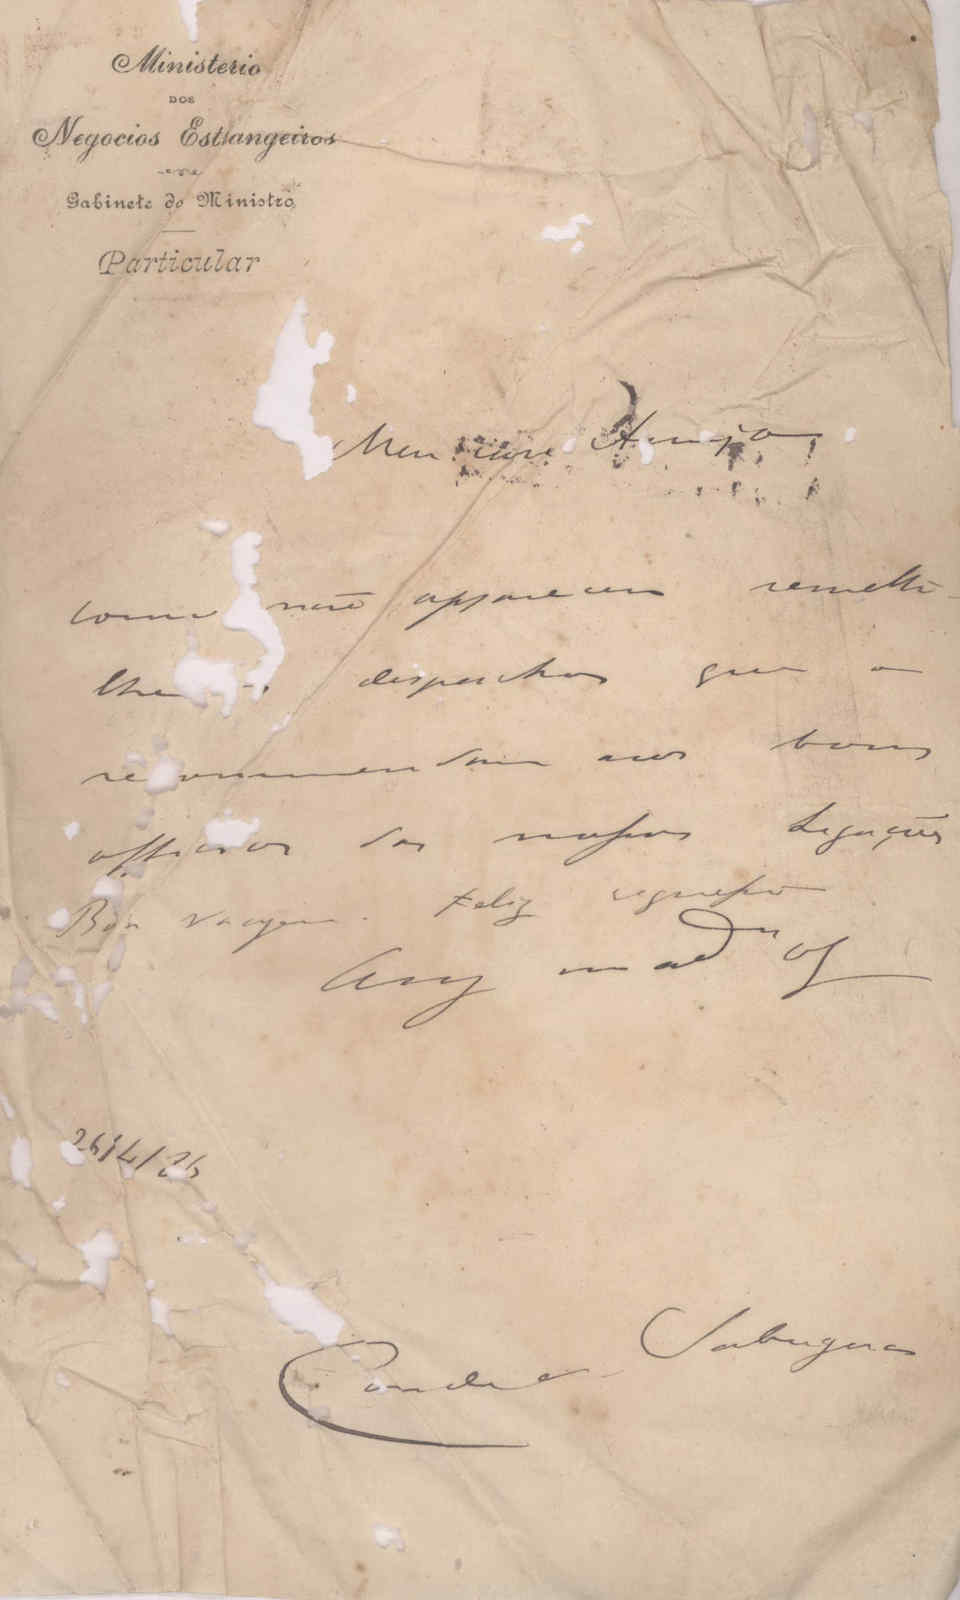 Ministerio
DOS
Negocios Estrangeiros
Gabinete do Ministro
Particular
Meu caro Amigo
como não appareceu remetto
lhe os despachos que o
recommendam aos bons
officios das nossas Legações
Boa viagem. Feliz regresso
Amg
26/4/26
Conde Sabugosa